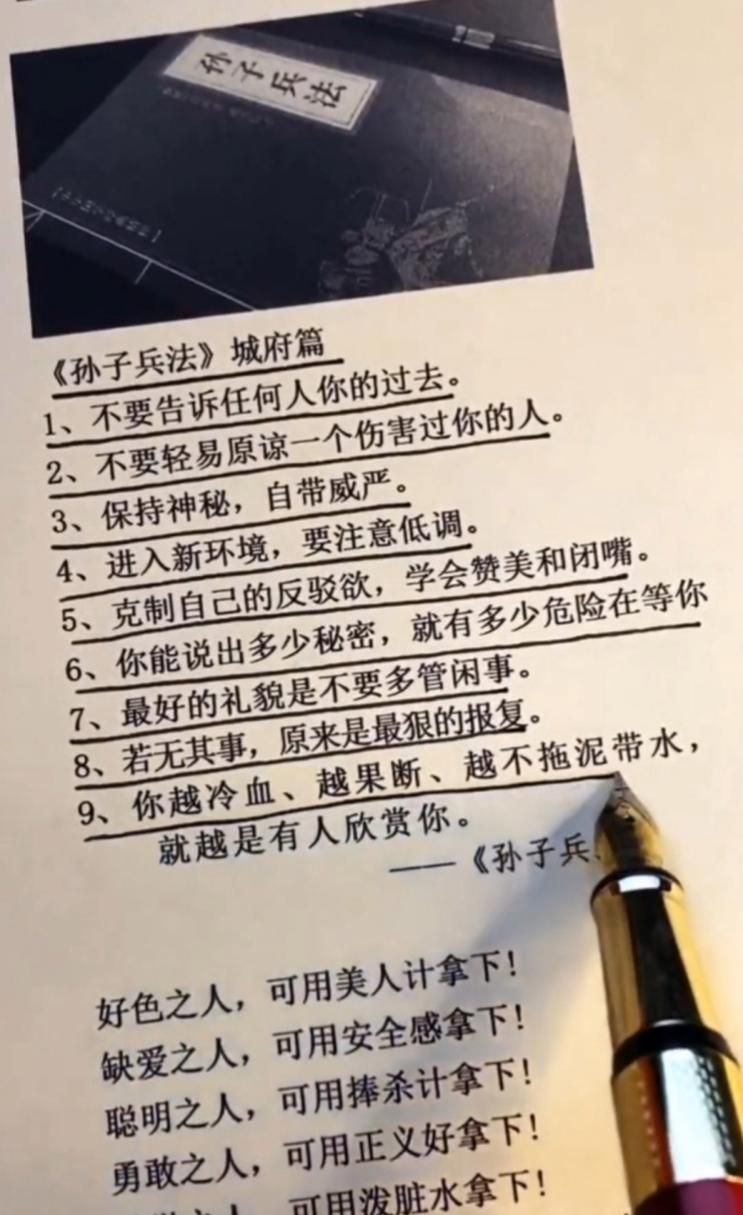 孙子兵法
《孙子兵法》城府篇
1、不要告诉任何人你的过去。
2、不要轻易原谅一个伤害过你的人。
3、保持神秘，自带威严。
4、进入新环境，要注意低调。
5、克制自己的反驳欲，学会赞美和闭嘴。
6、你能说出多少秘密，就有多少危险在等你
7、最好的礼貌是不要多管闲事。
8、若无其事，原来是最狠的报复。
9、你越冷血、越果断、越不拖泥带水，
就越是有人欣赏你。
——《孙子兵
好色之人，可用美人计拿下！
缺爱之人，可用安全感拿下！
聪明之人，可用捧杀计拿下！
勇敢之人，可用正义好拿下！
之人，可用泼脏水拿下！